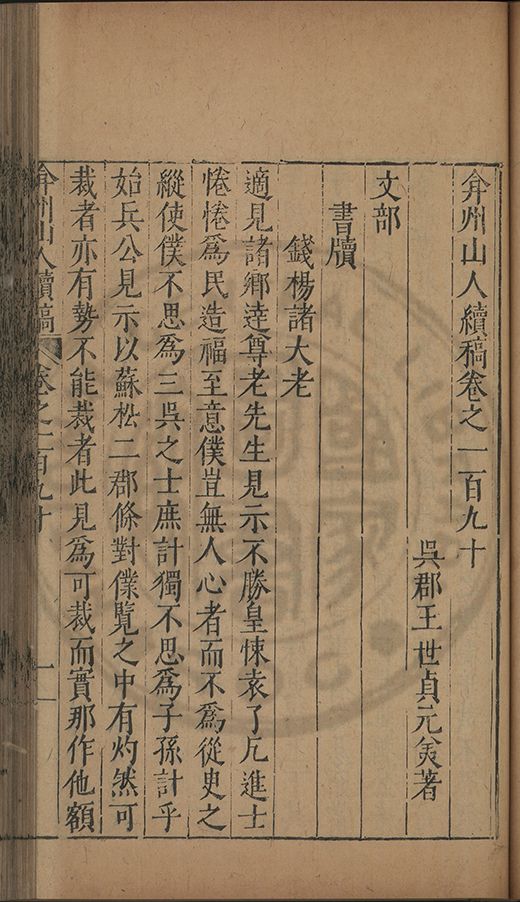 弇州山人續稿卷之一百九十
吳郡王世貞元美著
文部
書牘
錢楊諸大老
適見諸鄉達尊老先生見示不勝皇悚袁了凡進士
惓惓為民造福至意僕豈無人心者而不為從史之
縱使僕不思為三吳之士庶計獨不思為子孫計乎
始兵公見示以蘇松二郡條對僕覽之中有灼然可
裁者亦有勢不能裁者此見為可裁而實那作他額
弇州山人續稿 卷之一百九十 一